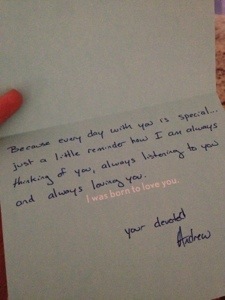 Because every day with you is special...
just a little reminder how I am always
thinking of you, always listening to you
and always loving you.
I was born to love you.
your devoted
Andrew